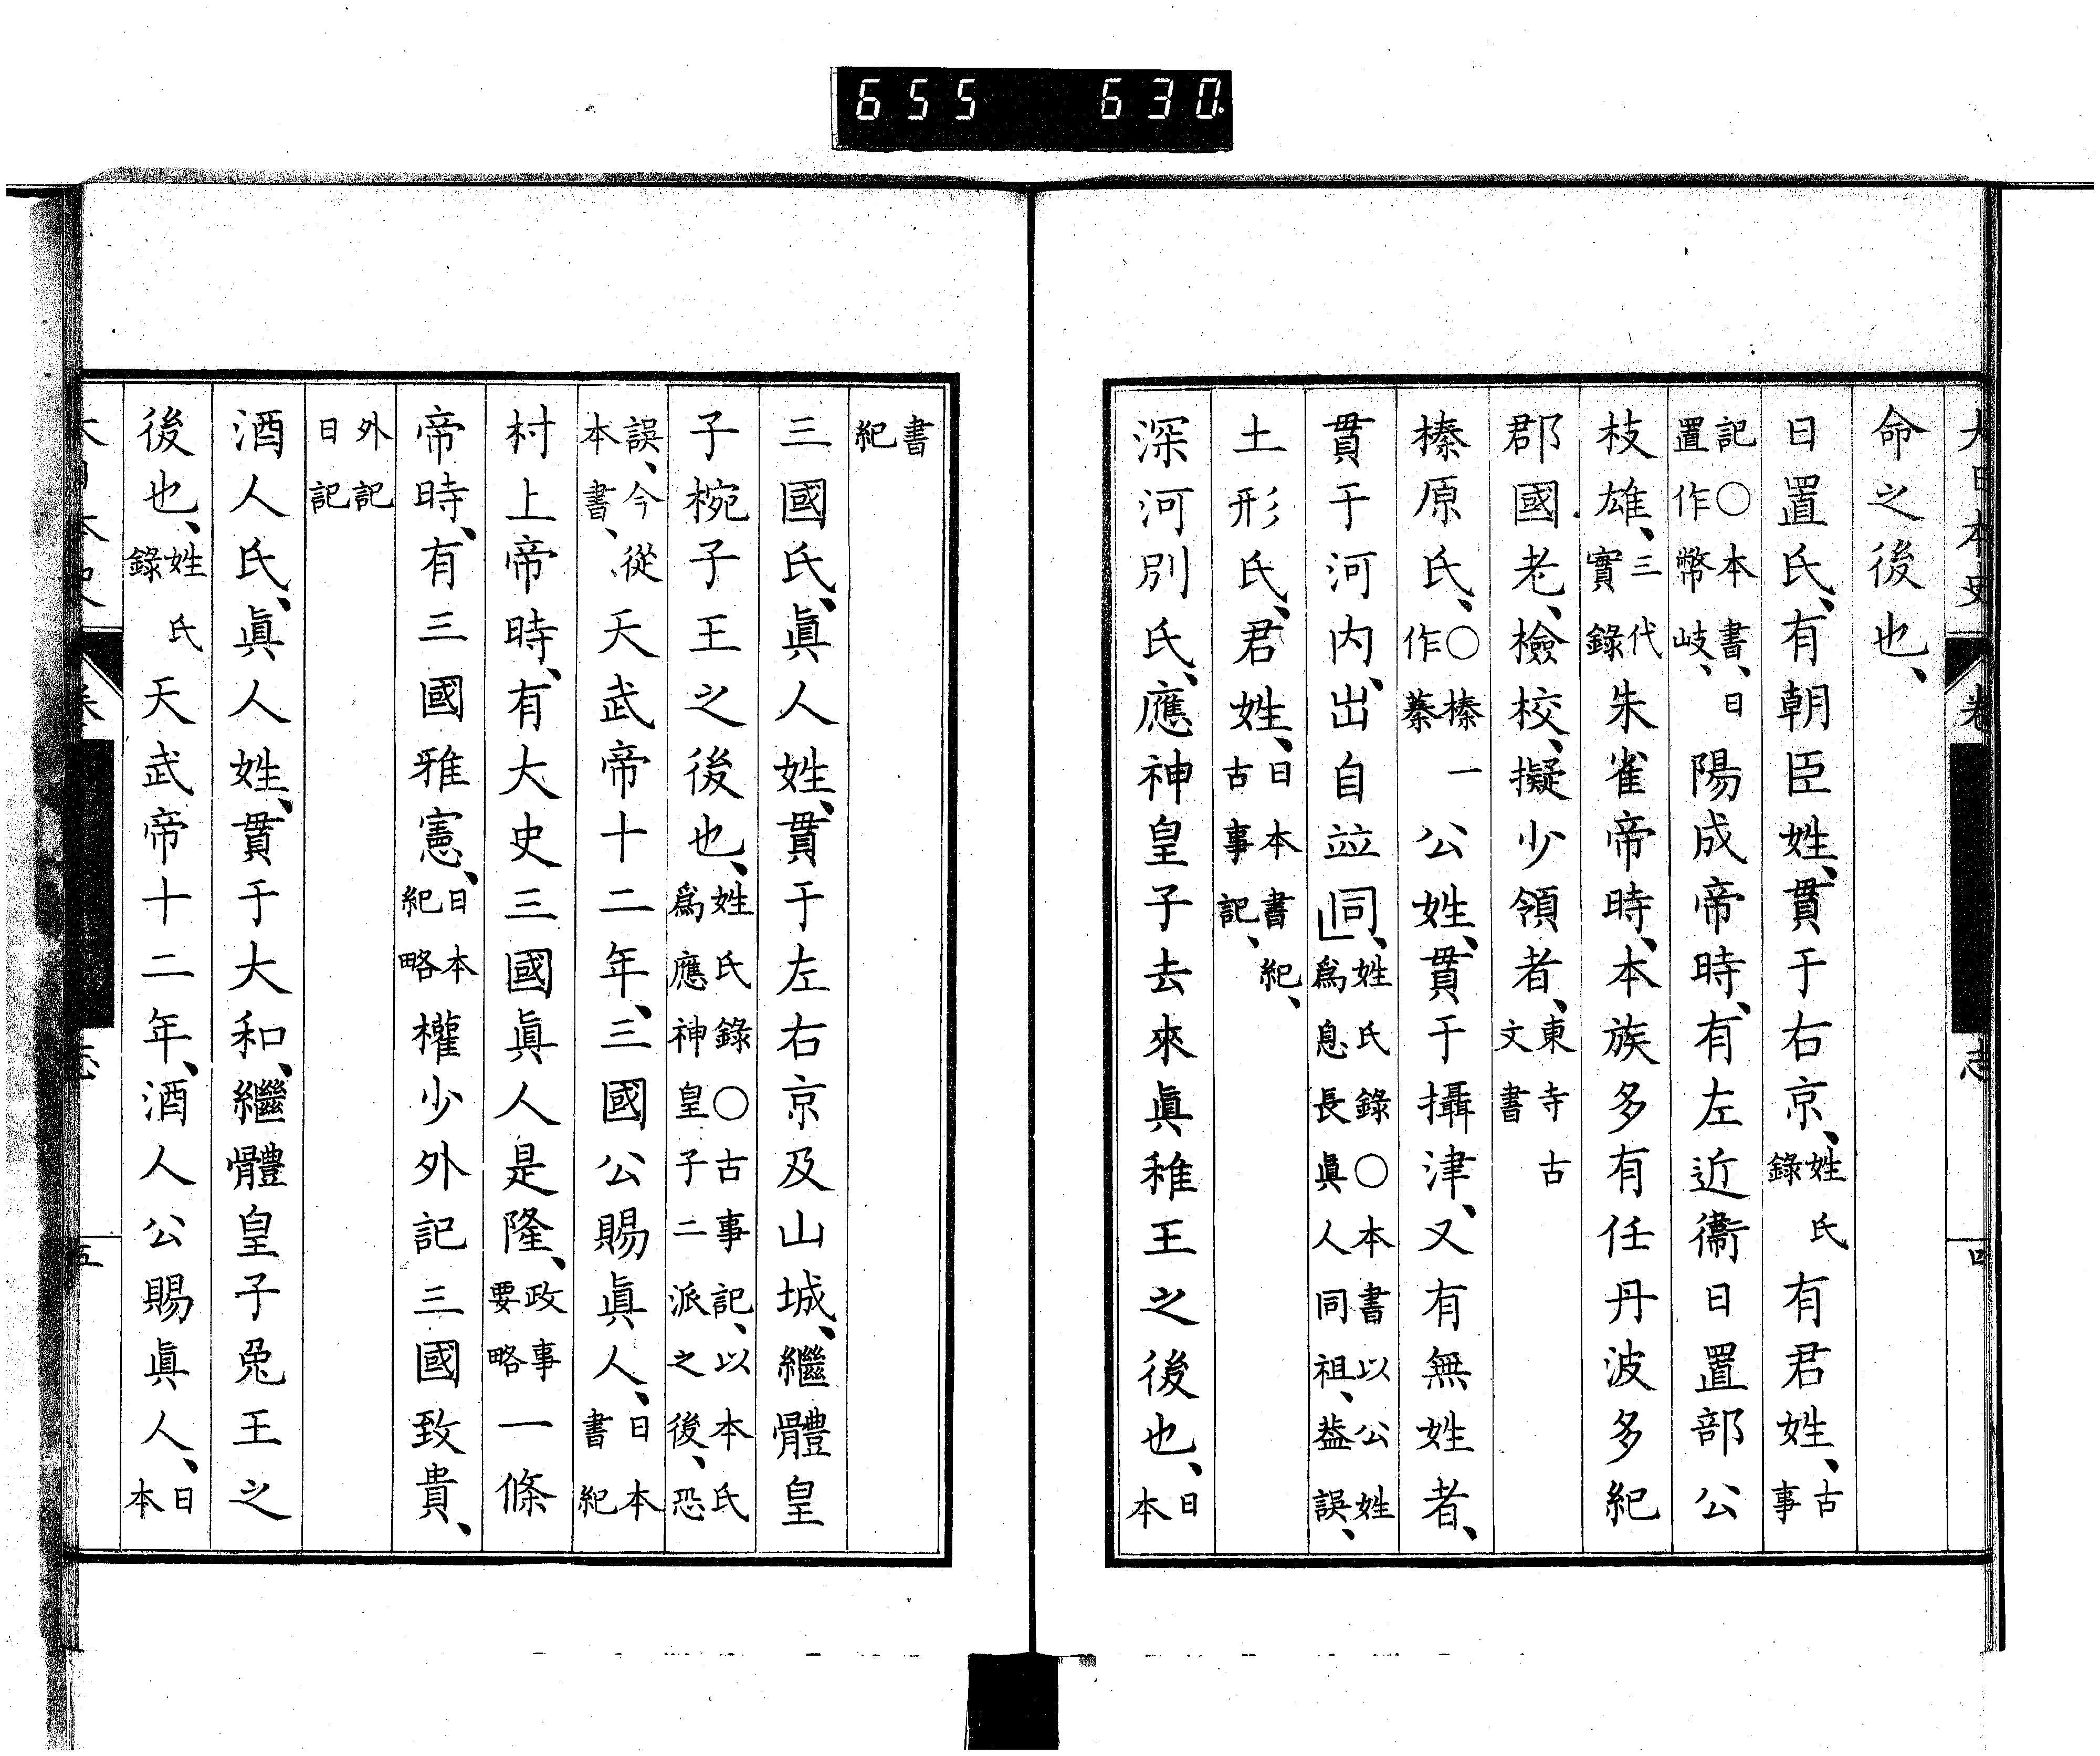 655 630
大日本史 卷 志 四
命之後也、
日置氏、有朝臣姓、貫于右京、姓氏錄有君姓、古事
記○本書、日置作幣岐、陽成帝時、有左近衞日置部公
枝雄、三代實錄朱雀帝時、本族多有任丹波多紀
郡國老、檢校、擬少領者、東寺古文書
榛原氏、○榛一作蓁公姓、貫于攝津、又有無姓者、
貫于河內、出自竝同、姓氏錄○本書以公姓爲息長眞人同祖、葢誤、
土形氏、君姓、日本書紀、古事記、
深河別氏、應神皇子去來眞稚王之後也、日本
書紀
三國氏、眞人姓、貫于左右京及山城、繼體皇
子椀子王之後也、姓氏錄○古事記、以本氏爲應神皇子二派之後、恐
誤、今從本書、天武帝十二年、三國公賜眞人、日本書紀
村上帝時、有大史三國眞人是隆、政事要略一條
帝時、有三國雅憲、日本紀略權少外記三國致貴、
外記日記
酒人氏、眞人姓、貫于大和、繼體皇子兔王之
後也、姓氏錄天武帝十二年、酒人公賜眞人、日本
大日本史 卷 志 五